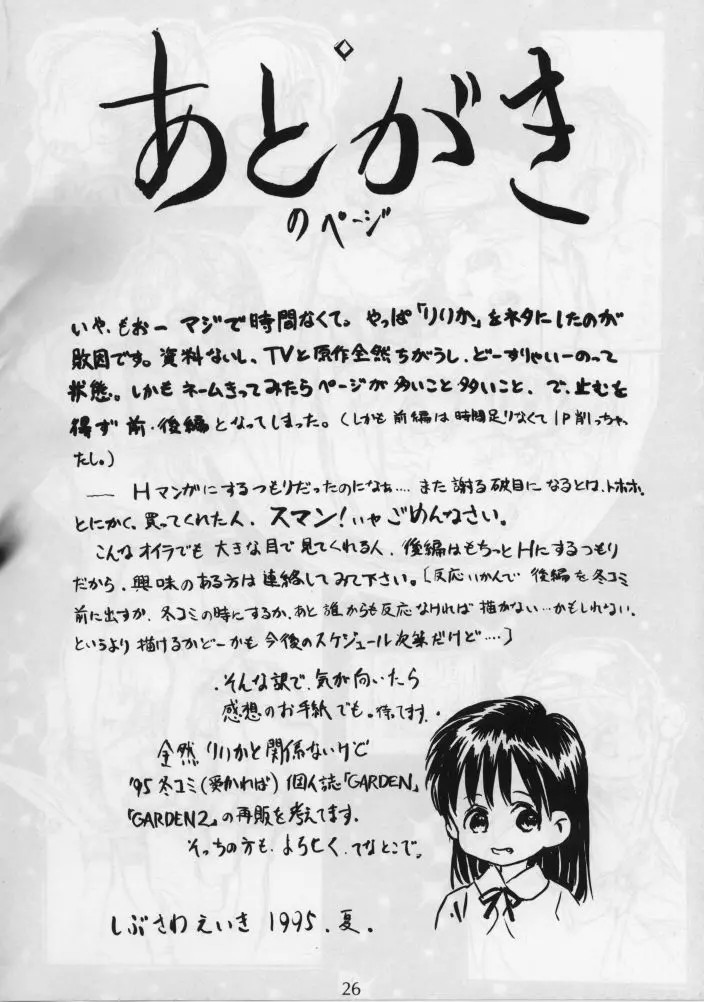 あとがき
のページ
いや、もおー マジで時間なくて。やっぱ「りりか」をネタにしたのが
敗因です。資料ないし、TVと原作全然ちがうし、どーすりゃいーのって
状態。しかもネームきってみたらページが多いこと多いこと、で、止むを
得ず前・後編となってしまった。(しかも前編は時間足りなくて1P削っちゃっ
たし。)
── Hマンがにするつもりだったのになぁ‥‥また謝る破目になるとは、トホホ。
とにかく、買ってくれた人、スマン!いやごめんなさい。
こんなオイラでも大きな目で見てくれる人、後編はもちっとHにするつもり
だから、興味のある方は連絡してみて下さい。[反応いかんで後編を冬コミ
前に出すか、冬コミの時にするか、あと誰からも反応なければ描かない…かもしれない。
というより描けるかどーかも今後のスケジュール次第だけど‥‥]
.そんな訳で、気が向いたら
感想のお手紙でも。待てます..
全然りりかと関係ないけど
'95冬コミ(受かれば)個人誌「GARDEN」
「GARDEN2」の再販を考えてます.
そっちの方も、よろしく、てなとこで。
しぶさわえいき 1995.夏.
26